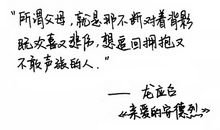 “所谓父母，就是那不断对着背影
既欢喜又悲伤，想追回拥抱又
不敢声张的人。”
—— 龙应台
《亲爱的安德烈》